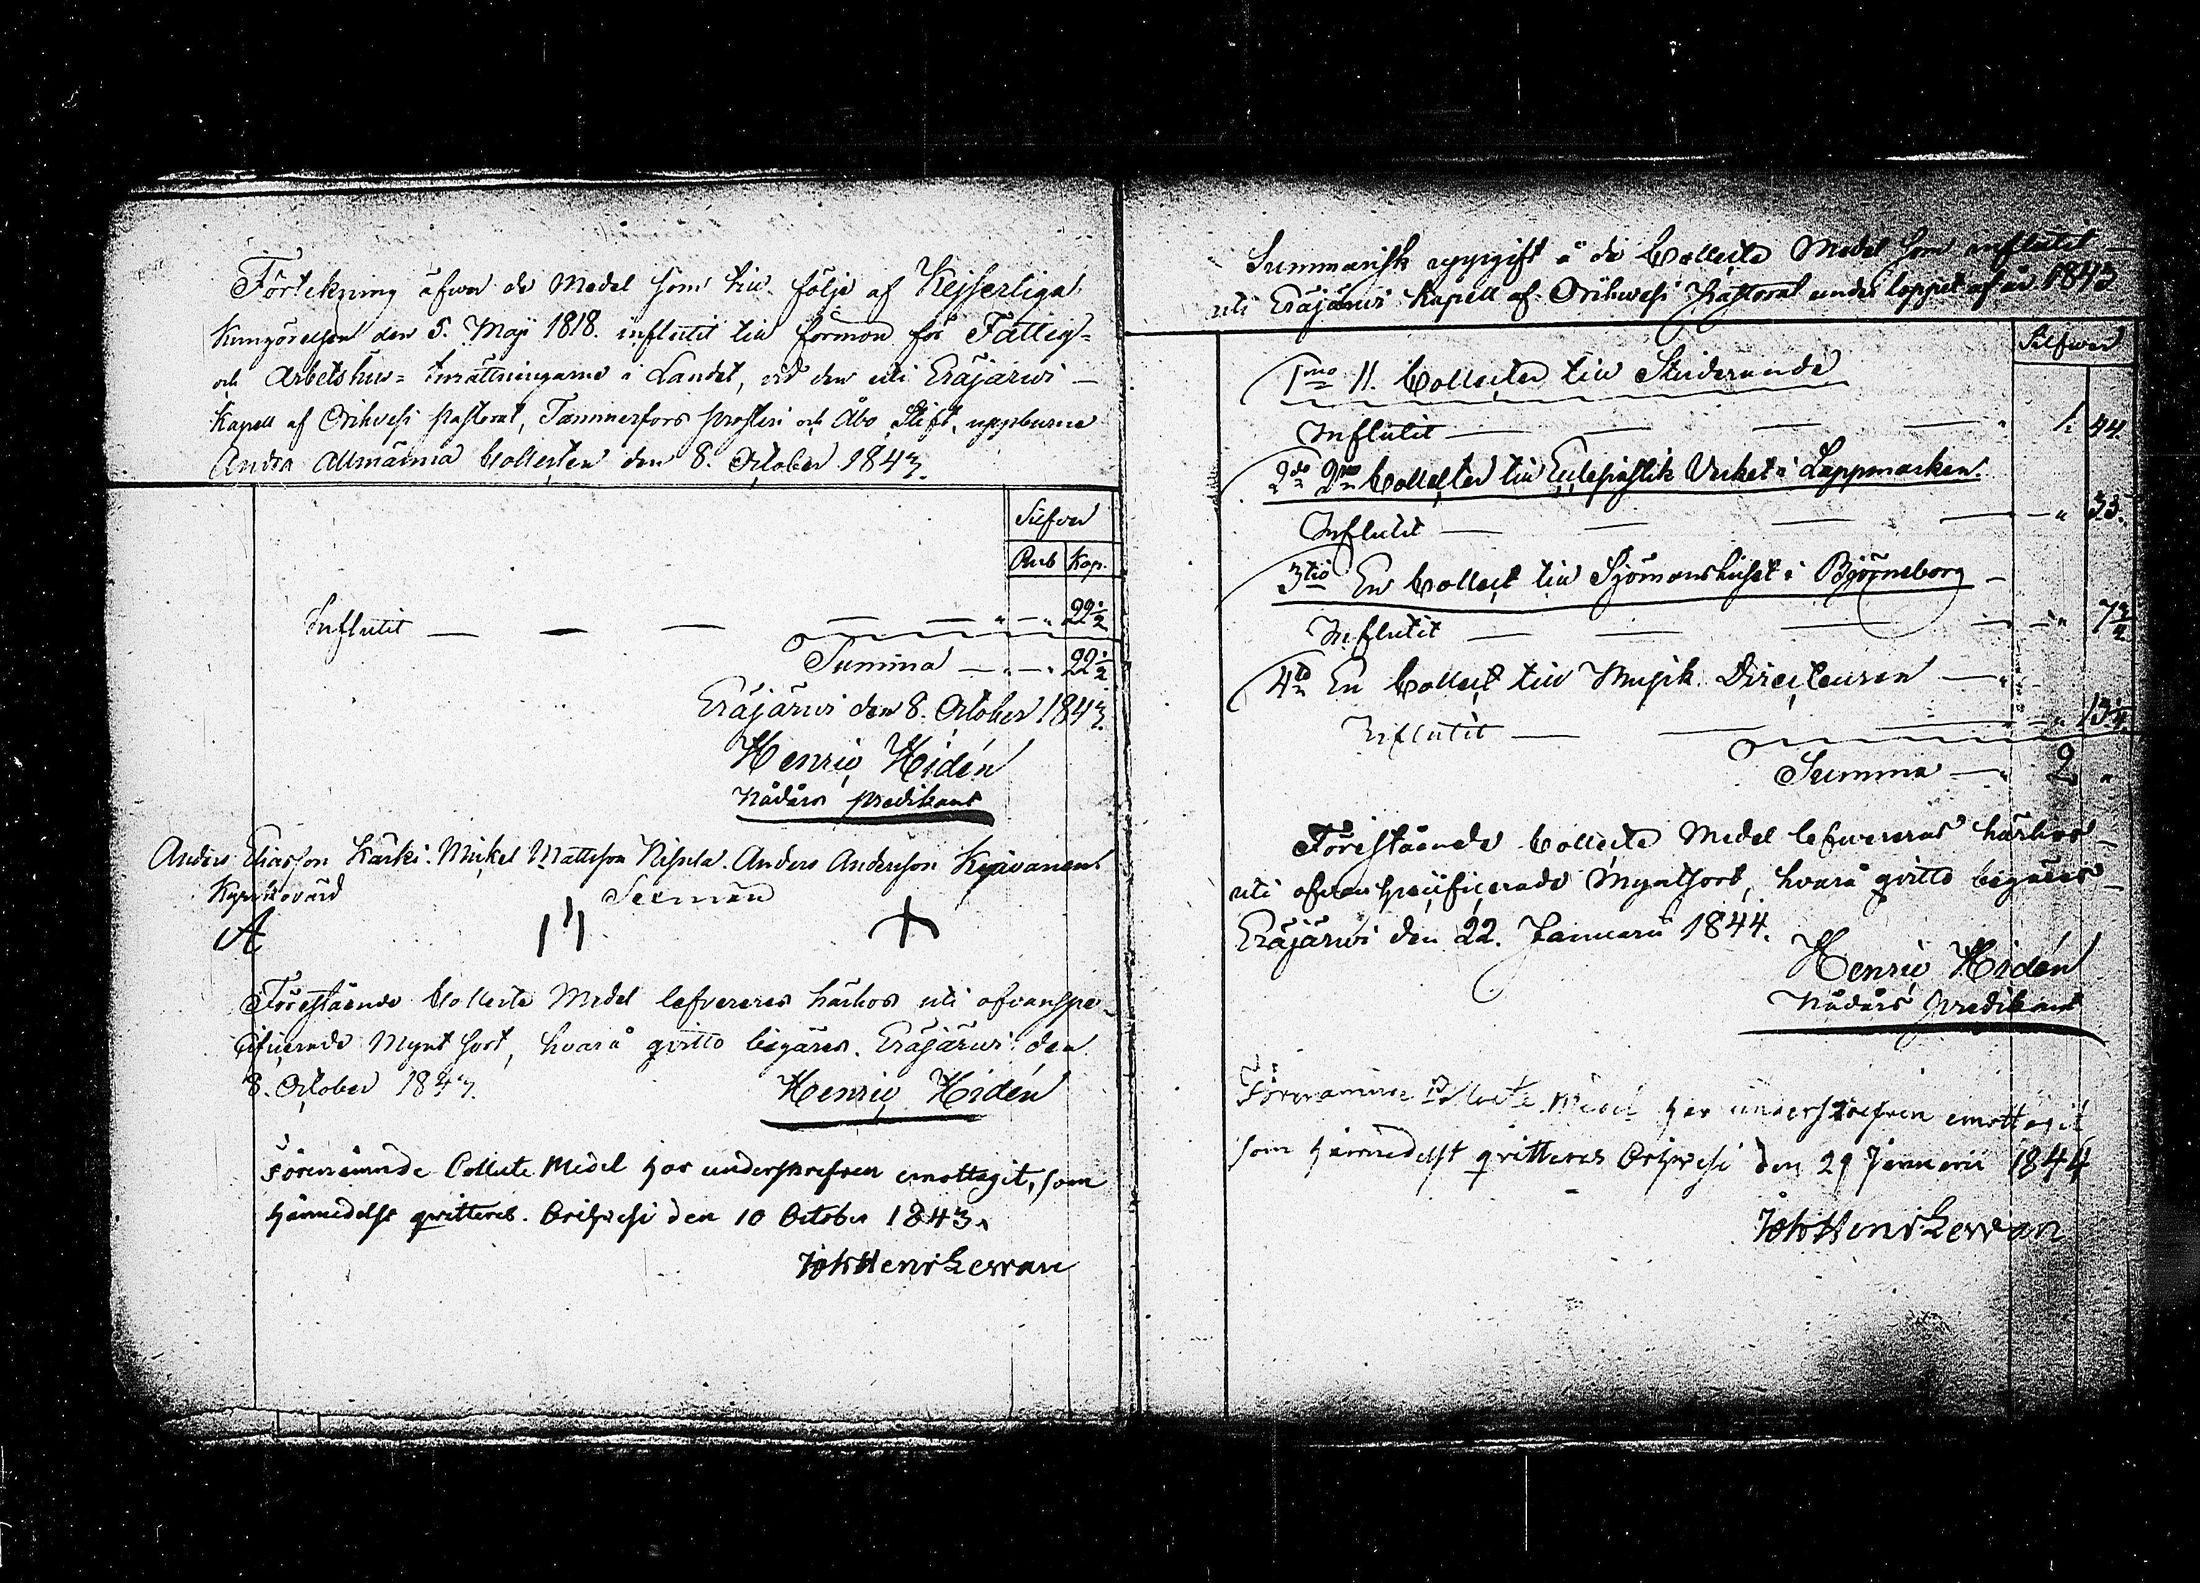 Förtekning äfwer de Medel som till följe af Kejserliga
Kungörelsen den 5. Maji 1818. influtit till förmon för Fattig=
och Arbetshus= Inrättningarne i Landet, vid den uti Eräjärwi
Kapell af Orihvesi Pastorat, Tammerfors Prosteri och Åbo Stift, uppburne
Andra Allmänna Collecten den 8. October 1843.
Silfver
Rub Kop.
Influtit — — — — — „ — „ 22 1/2
Summa — „ — „ 22 1/2
Eräjärwi den 8. October 1843.
Henric Hidén
Nådårs Predikant
Anders Eliasson Kärki. Mickel Mattsson Nisula. Anders Andersson
Kyrkovärd Sexmän
Förestående Collecte Medel lefvereras härhos uti ofvanspe-
cificerade Myntsort, hvarå qvitto begäres. Eräjärwi den
8. October 1843.
Henric Hidén
Förenämnde Collecte Medel har undersknefven emottagit, som
härmedelst qvitteres. Orihvesi den 10 October 1843.
Summarisk uppgift å de Collecte Medel som influtit
uti Eräjärwi Kapell af Orihwesi Pastorat under loppet af år 1843
Silfwer
1mo 11. Collecter till Studerande
Influtit — — — — 1. 44.
2do 2ne Collecter till Ecclesiastik Verket i Lappmarken.
Influtit — — — — „ 35.
3tio En Collect till Sjömanshuset i Björneborg
Influtit — — — — „ 7 3/4
4to En Collect till Musik Directeuren — „
Influtit — — — — „ 13 1/4
Summa — „ 2 „
Förestående Collecte Medel lefvereras härhos
uti ofvanspecificerade Myntsort, hvarå qvitto begäres
Eräjärwi den 22. Januarii 1844.
Henric Hidén
Nådårs Predikant
Förenämnde Collecte Medel har underskrefven emottagit
som härmedelst qvitteres Orihvesi den 29 Januarii 1844